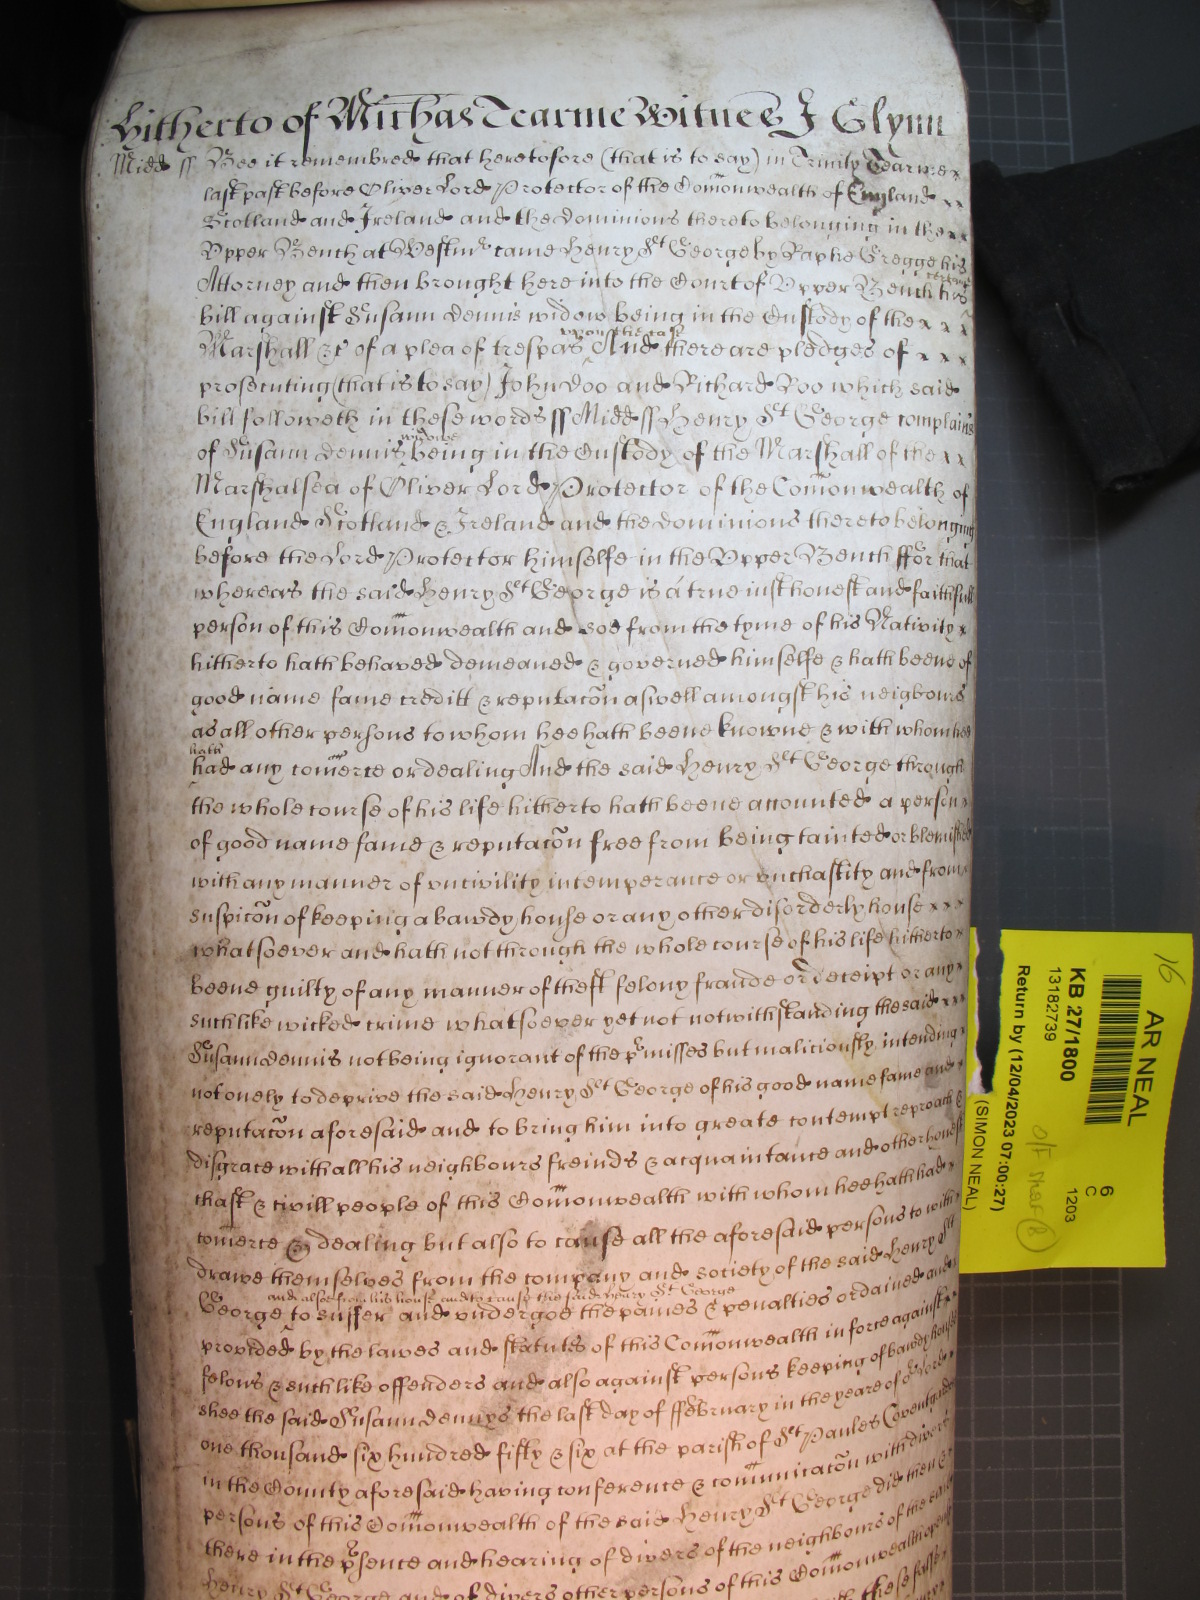 hitherto of Michas Tearme Witnes J Glynn
Midd ss Bee it remembred that heretofore (that is to say) in Trinity Tearme x
last past before Oliver Lord Protector of the Com̃onwealth of England x x
Scotland and Ireland and the dominions thereto belonging in the x x
Upper Bench at Westmr came Henry St George by Raphe Gregge his
Attorney and then brought here into the Court of Upper Bench his certaine
bill against Susann Dennis widow being in the Custody of the x x x
Marshall &c of a plea of trespas upon the case And there are pledges of x x x
prosecuting (that is to say) John Doo and Richard Roo which said
bill followeth in these words ss Midd ss Henry St George complains
of Susann Dennis widowe being in the Custody of the Marshall of the x x
Marshalsea of Oliver Lord Protector of the Com̃onwealth of
England Scotland & Ireland and the dominions thereto belonging
before the Lord Protector himselfe in the Upper Bench ffor that
whereas the said Henry St George is a true iust honest and faithfull
person of this Com̃onwealth and soe from the tyme of his Nativity x
hitherto hath behaved demeaned & governed himselfe & hath beene of
good name fame creditt & reputac̃on aswell amongst his neigbours
as all other persons to whom hee hath beene knowne & with whom hee
hath had any com̃erce or dealing And the said Henry St George through
the whole course of his life hitherto hath beene accounted a person x
of good name fame & reputac̃on free from being tainted or blemished
with any manner of vncivility intemperance or vnchastity and from
suspic̃on of keeping a bawdy house or any other disorderly house x x x
whatsoever and hath not through the whole course of his life hitherto x
beene guilty of any manner of theft felony fraude or deceipt or any x
such like wicked crime whatsoever yet not notwithstanding the said x x x
Susann Dennis not being ignorant of the prmisses but maliciously intending
not onely to deprive the said Henry St George of his good name fame and
reputac̃on aforesaid and to bring him into greate contempt reproach &
disgrace with all his neighbours freinds & acquaintance and other honest
chast & civill people of this Com̃onwealth with whom hee hath had x
com̃erce & dealing but also to cause all the aforesaid persons to with
drawe themselves from the company and society of the said Henry St
George and also from his house and to cause the said Henry St George to suffer and undergoe the paines & penalties ordained and
provided by the lawes and statutes of this Com̃onwealth in force against x
felons & such like offenders and also against persons keeping of bawdy houses
shee the said Susann Dennys the last day of ffebruary in the yeare of or Lord
one thousand six hundred fifty & six at the parish of St Paules Coventgarden
in the County aforesaid having conference & com̃unicac̃on with divers
persons of this Com̃onwealth of the said Henry St George did then &
there in the prsence and hearing of divers of the neighbours of the said
Henry St George and of divers other persons of this Com̃onwealth
these false
16
AR NEAL
KB 27/1800
13182739
Return by (12/04/2023 07:00:27)
(SIMON NEAL)
6
C
1203